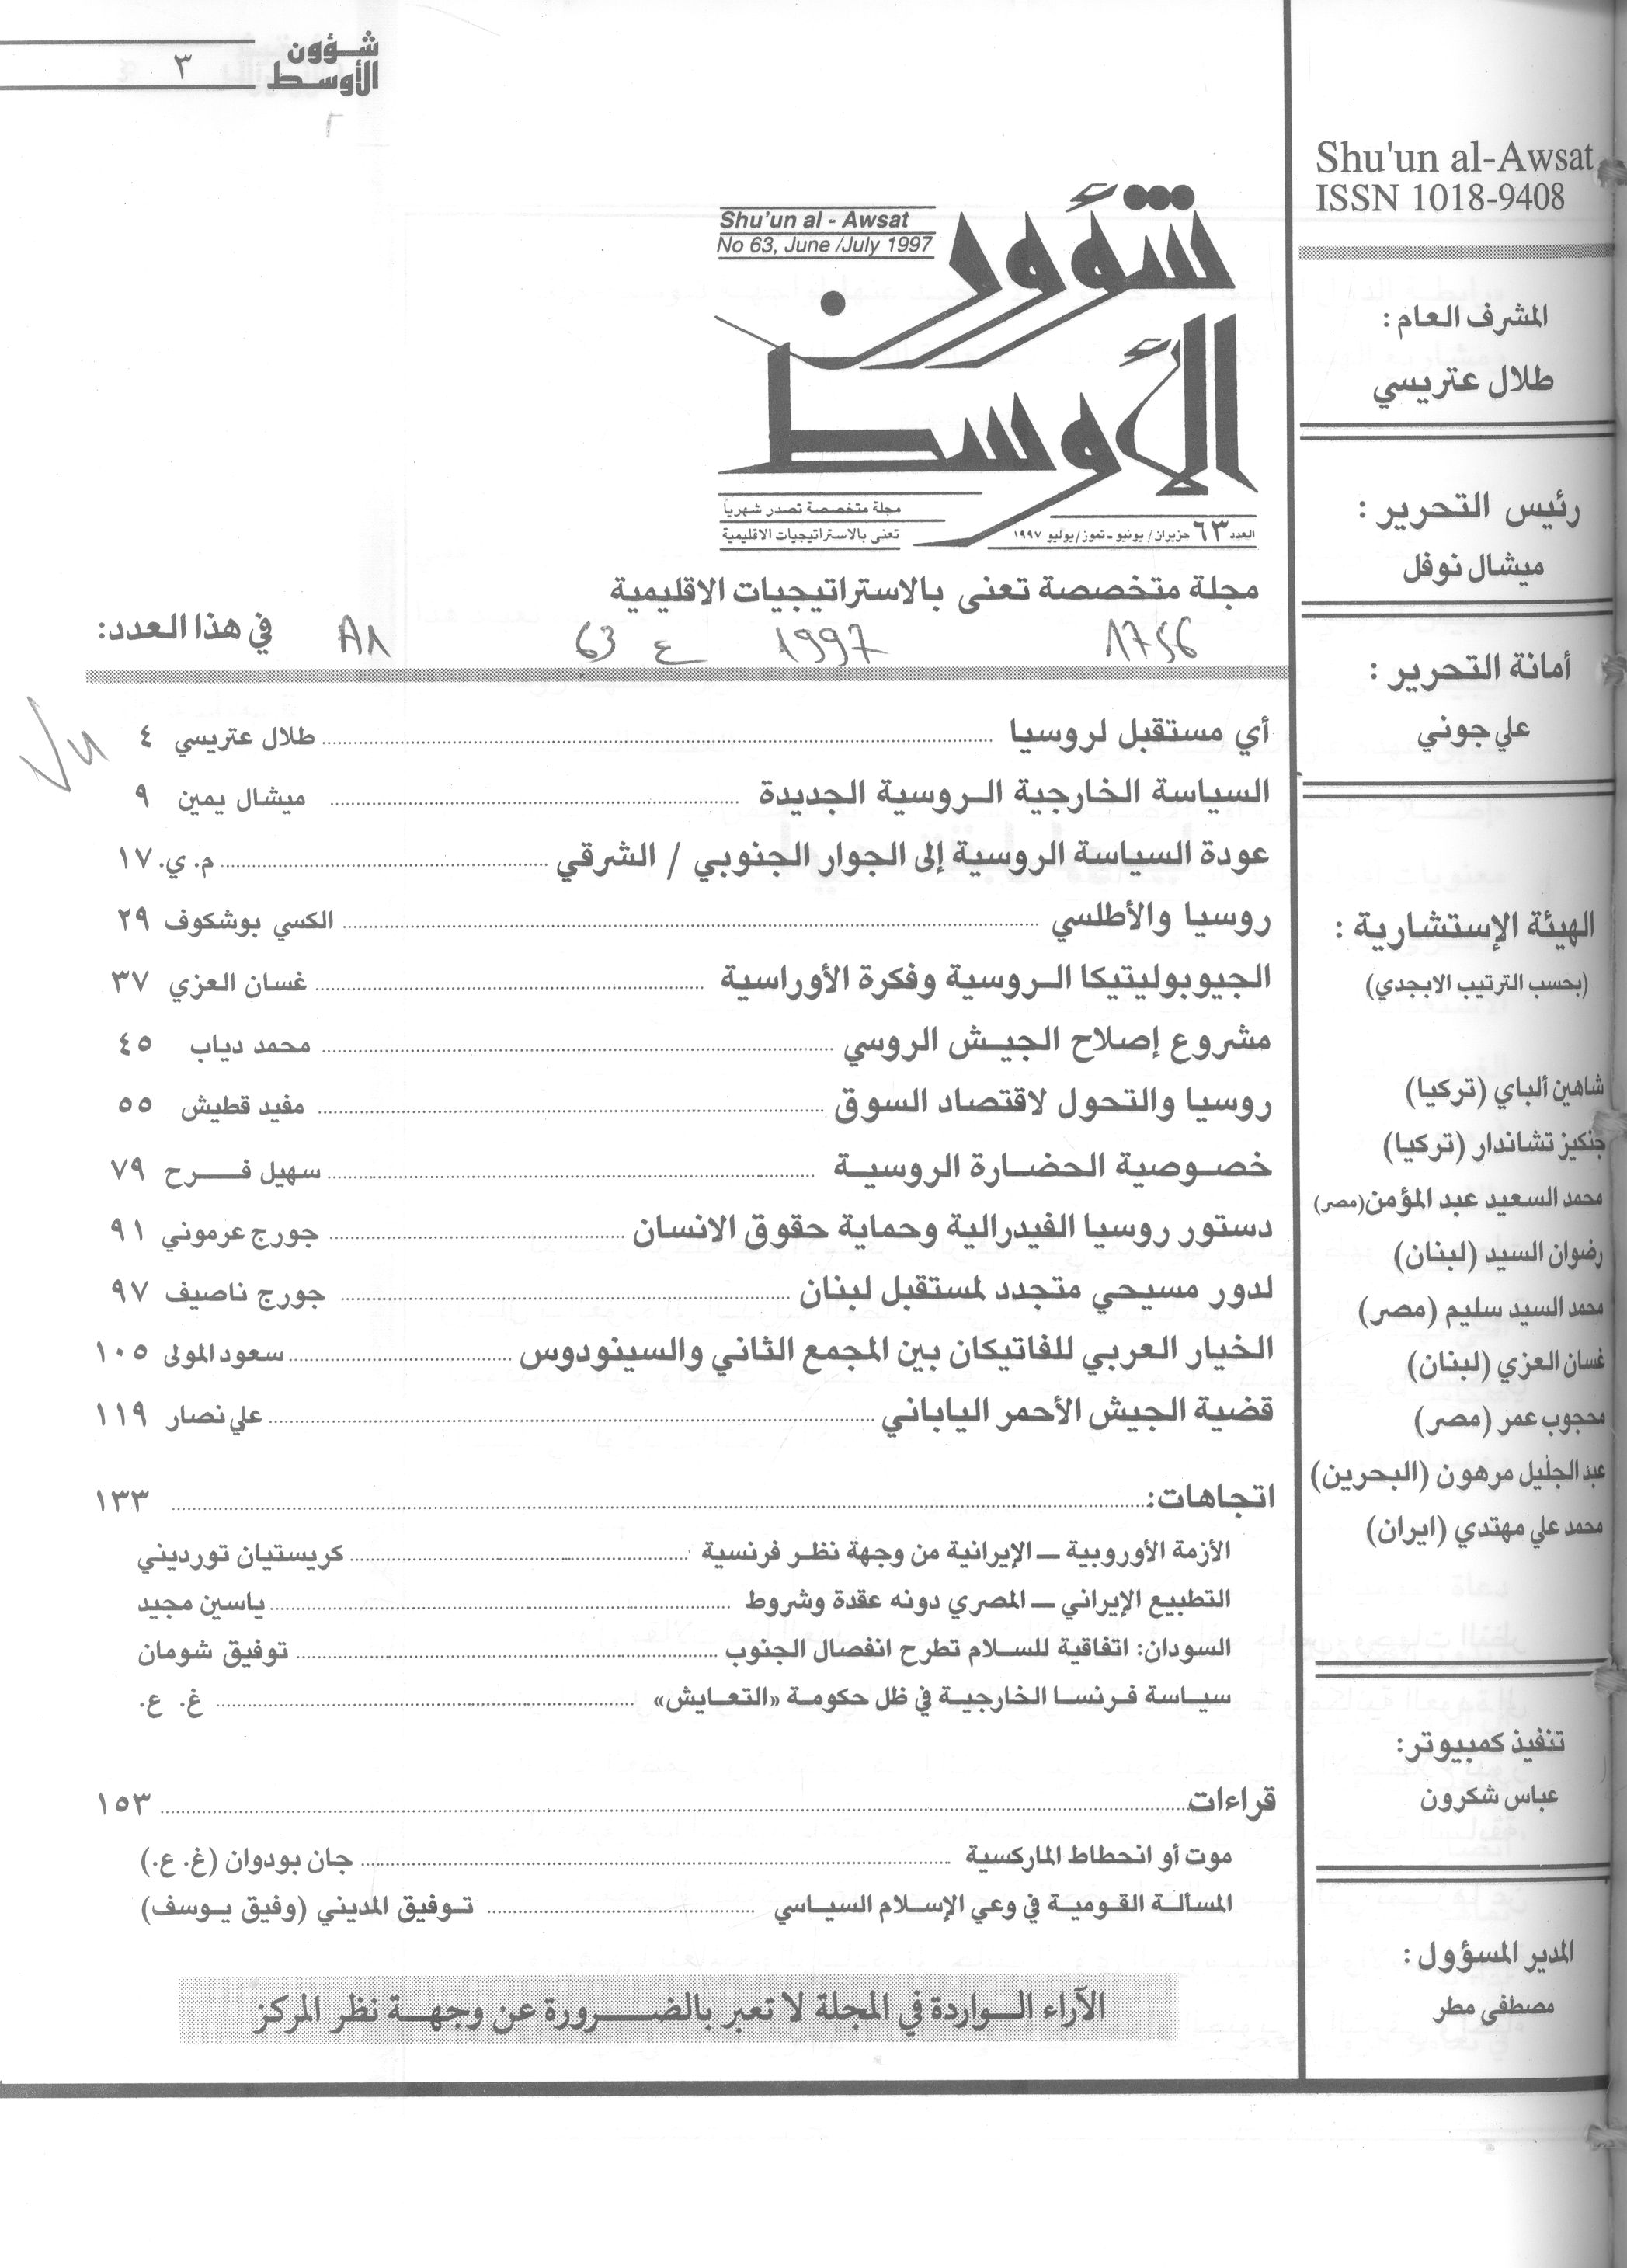 شؤون
الأوسط
٣
Shu'un al-Awsat
ISSN 1018-9408
المشرف العام :
طلال عتريسي
رئيس التحرير :
ميشال نوفل
أمانة التحرير :
علي جوني
الهيئة الإستشارية :
(بحسب الترتيب الابجدي)
شاهين ألباي (تركيا)
جنكيز تشاندار (تركيا)
محمد السعيد عبد المؤمن(مصر)
رضوان السيد (لبنان)
محمد السيد سليم (مصر)
غسان العزي (لبنان)
محجوب عمر (مصر)
عبد الجليل مرهون (البحرين)
محمد علي مهتدي (ايران)
تنفيذ كمبيوتر:
عباس شكرون
المدير المسؤول :
مصطفى مطر
Shu'un al - Awsat
No 63, June /July 1997
شؤون
الأوسط
مجلة متخصصة تصدر شهرياً
تعنى بالاستراتيجيات الاقليمية
العدد ٦٣ حزيران/ يونيو - تموز/ يوليو ١٩٩٧
مجلة متخصصة تعنى بالاستراتيجيات الاقليمية
في هذا العدد:
1756 1997 ع 63 A1
أي مستقبل لروسيا ........ طلال عتريسي ٤
السياسة الخارجية الروسية الجديدة ........ ميشال يمين ٩
عودة السياسة الروسية إلى الجوار الجنوبي / الشرقي ........ م. ي. ١٧
روسيا والأطلسي ........ الكسي بوشكوف ٢٩
الجيوبوليتيكا الروسية وفكرة الأوراسية ........ غسان العزي ٣٧
مشروع إصلاح الجيش الروسي ........ محمد دياب ٤٥
روسيا والتحول لاقتصاد السوق ........ مفيد قطيش ٥٥
خصوصية الحضارة الروسية ........ سهيل فرح ٧٩
دستور روسيا الفيدرالية وحماية حقوق الانسان ........ جورج عرموني ٩١
لدور مسيحي متجدد لمستقبل لبنان ........ جورج ناصيف ٩٧
الخيار العربي للفاتيكان بين المجمع الثاني والسينودوس ........ سعود المولى ١٠٥
قضية الجيش الأحمر الياباني ........ علي نصار ١١٩
اتجاهات: ........ ١٣٣
الأزمة الأوروبية ـ الإيرانية من وجهة نظر فرنسية ........ كريستيان تورديني
التطبيع الإيراني ـ المصري دونه عقدة وشروط ........ ياسين مجيد
السودان: اتفاقية للسلام تطرح انفصال الجنوب ........ توفيق شومان
سياسة فرنسا الخارجية في ظل حكومة «التعايش» ........ غ. ع.
قراءات ........ ١٥٣
موت أو انحطاط الماركسية ........ جان بودوان (غ. ع.)
المسألة القومية في وعي الإسلام السياسي ........ توفيق المديني (وفيق يوسف)
الآراء الواردة في المجلة لا تعبر بالضرورة عن وجهة نظر المركز